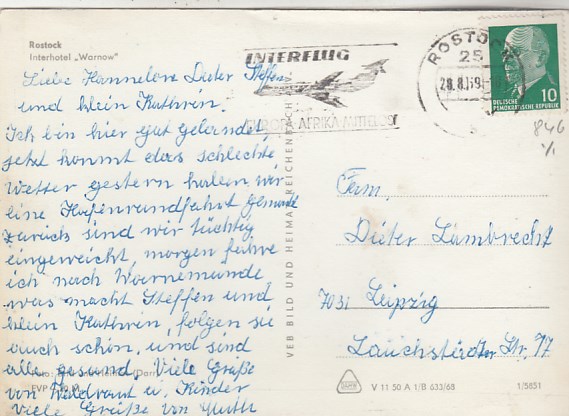 Rostock
Interhotel „Warnow"
Liebe Hannelore Dieter Steffen
und klein Kathrin.
Ich bin hier gut gelandet,
jetzt kommt das schlechte
Wetter gestern haben wir
eine Hafenrundfahrt gemacht
zurück sind wir tüchtig
eingeweicht, morgen fahre
ich nach Warnemünde
was macht Steffen und
klein Kathrin, folgen sie
auch schön, und sind
alle gesund, Viele Grüße
von Waltraut u. Kinder
viele Grüße von Mutti
Foto:
EVP
VEB BILD UND HEIMAT REICHENBACH
INTERFLUG
EUROPA-AFRIKA-NAHOST
ROSTOCK
25
28.8.69
10
DEUTSCHE
DEMOKRATISCHE REPUBLIK
846
1/1
Fam.
Dieter Lambrecht
7031 Leipzig
Lauchstädter Str. 77
V 11 50 A 1/B 633/68
1/5851